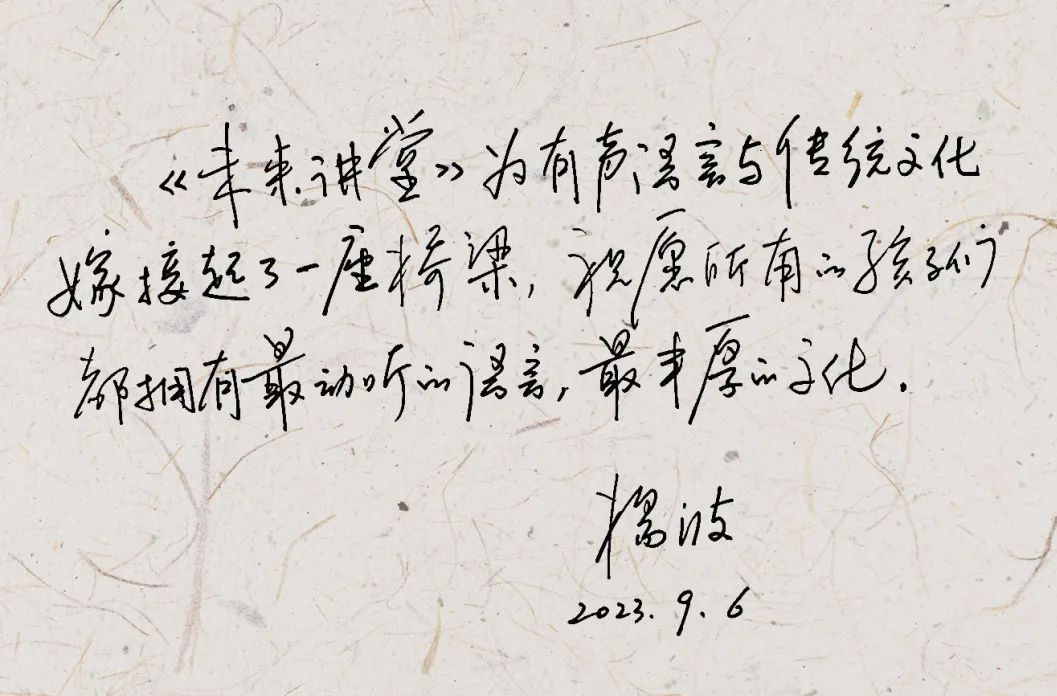 《未来讲堂》为有声语言与传统文化
嫁接起了一座桥梁，祝愿所有的孩子们
都拥有最动听的语言，最丰厚的文化．
杨波
2023.9.6